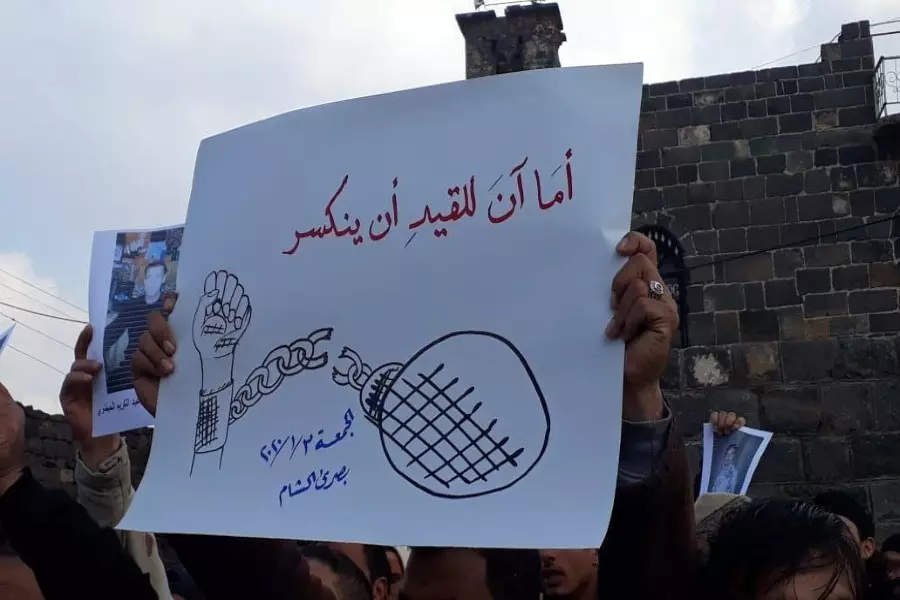 أَمَا آنَ للقيدِ أن ينكسر
الجمعة ٢٠٢٠/١/٣
بصرى الشام
عبد الكريم